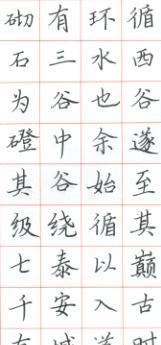 循西谷遂至其巅古时
环水也余始循以入道
有三谷中谷绕泰安城
砌石为磴其级七千有